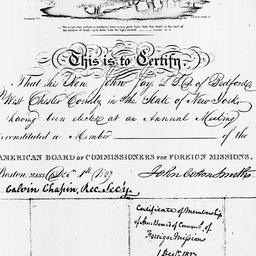 This is to Certify,
That the Hon. John Jay L.L.D. of Bedford
West Chester County in the State of New York
having been elected at an Annual Meeting
is constituted a Member of the
AMERICAN BOARD OF COMMISSIONERS FOR FOREIGN MISSIONS.
Boston, MASS. 1st 1827
John Cotton Smith
Calvin Chapin, Rec. Sec'y.
Certificate of Membership
of Am. Board of Comms. of
Foreign Missions
1 Dec. 1827